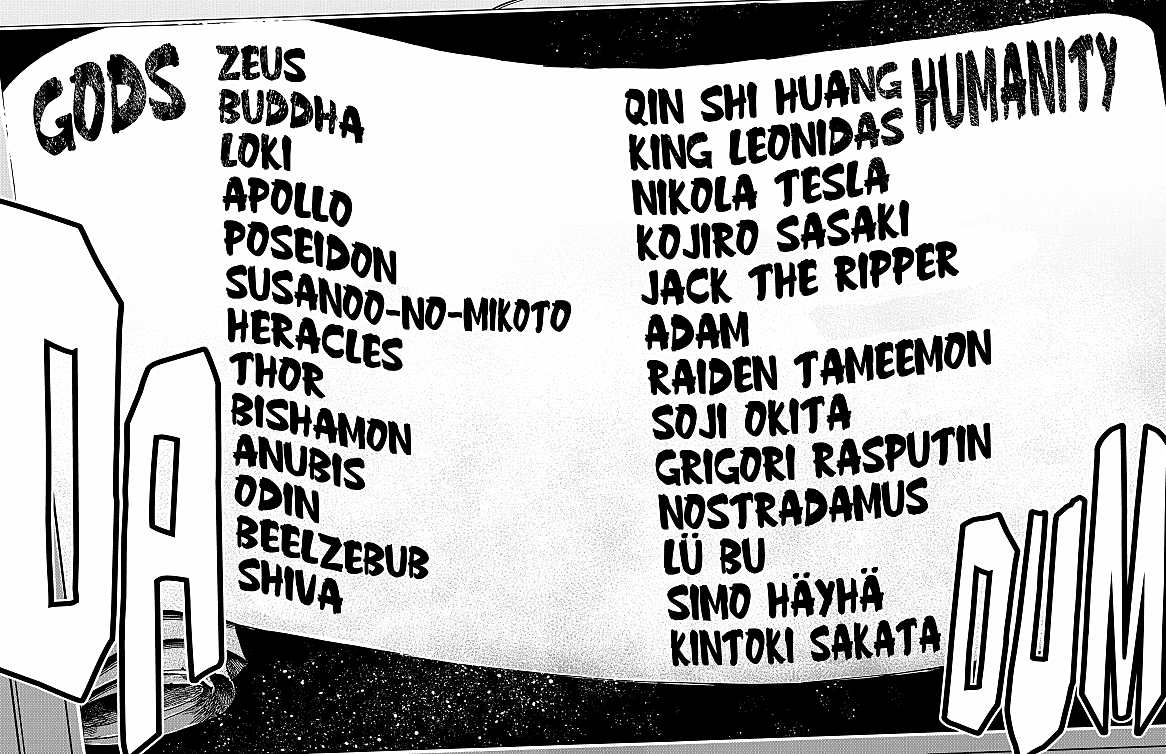 GODS
ZEUS
BUDDHA
LOKI
APOLLO
POSEIDON
SUSANOO-NO-MIKOTO
HERACLES
THOR
BISHAMON
ANUBIS
ODIN
BEELZEBUB
SHIVA
HUMANITY
QIN SHI HUANG
KING LEONIDAS
NIKOLA TESLA
KOJIRO SASAKI
JACK THE RIPPER
ADAM
RAIDEN TAMEEMON
SOJI OKITA
GRIGORI RASPUTIN
NOSTRADAMUS
LÜ BU
SIMO HÄYHÄ
KINTOKI SAKATA
DA
DUM